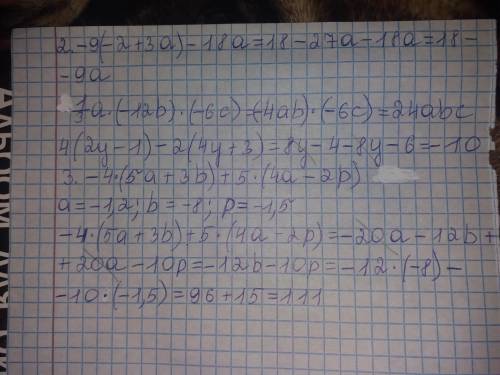 2. -9(-2+3a)-18a=18-27a-18a=18-
-9a
1/3a·(-12b)·(-6c)=(-4ab)·(-6c)=24abc
4(2y-1)-2(4y+3)=8y-4-8y-6=-10
3. -4·(5a+3b)+5·(4a-2p)
a=-1,2; b=-8; p=-1,5
-4·(5a+3b)+5·(4a-2p)=-20a-12b+
+20a-10p=-12b-10p=-12·(-8)-
-10·(-1,5)=96+15=111